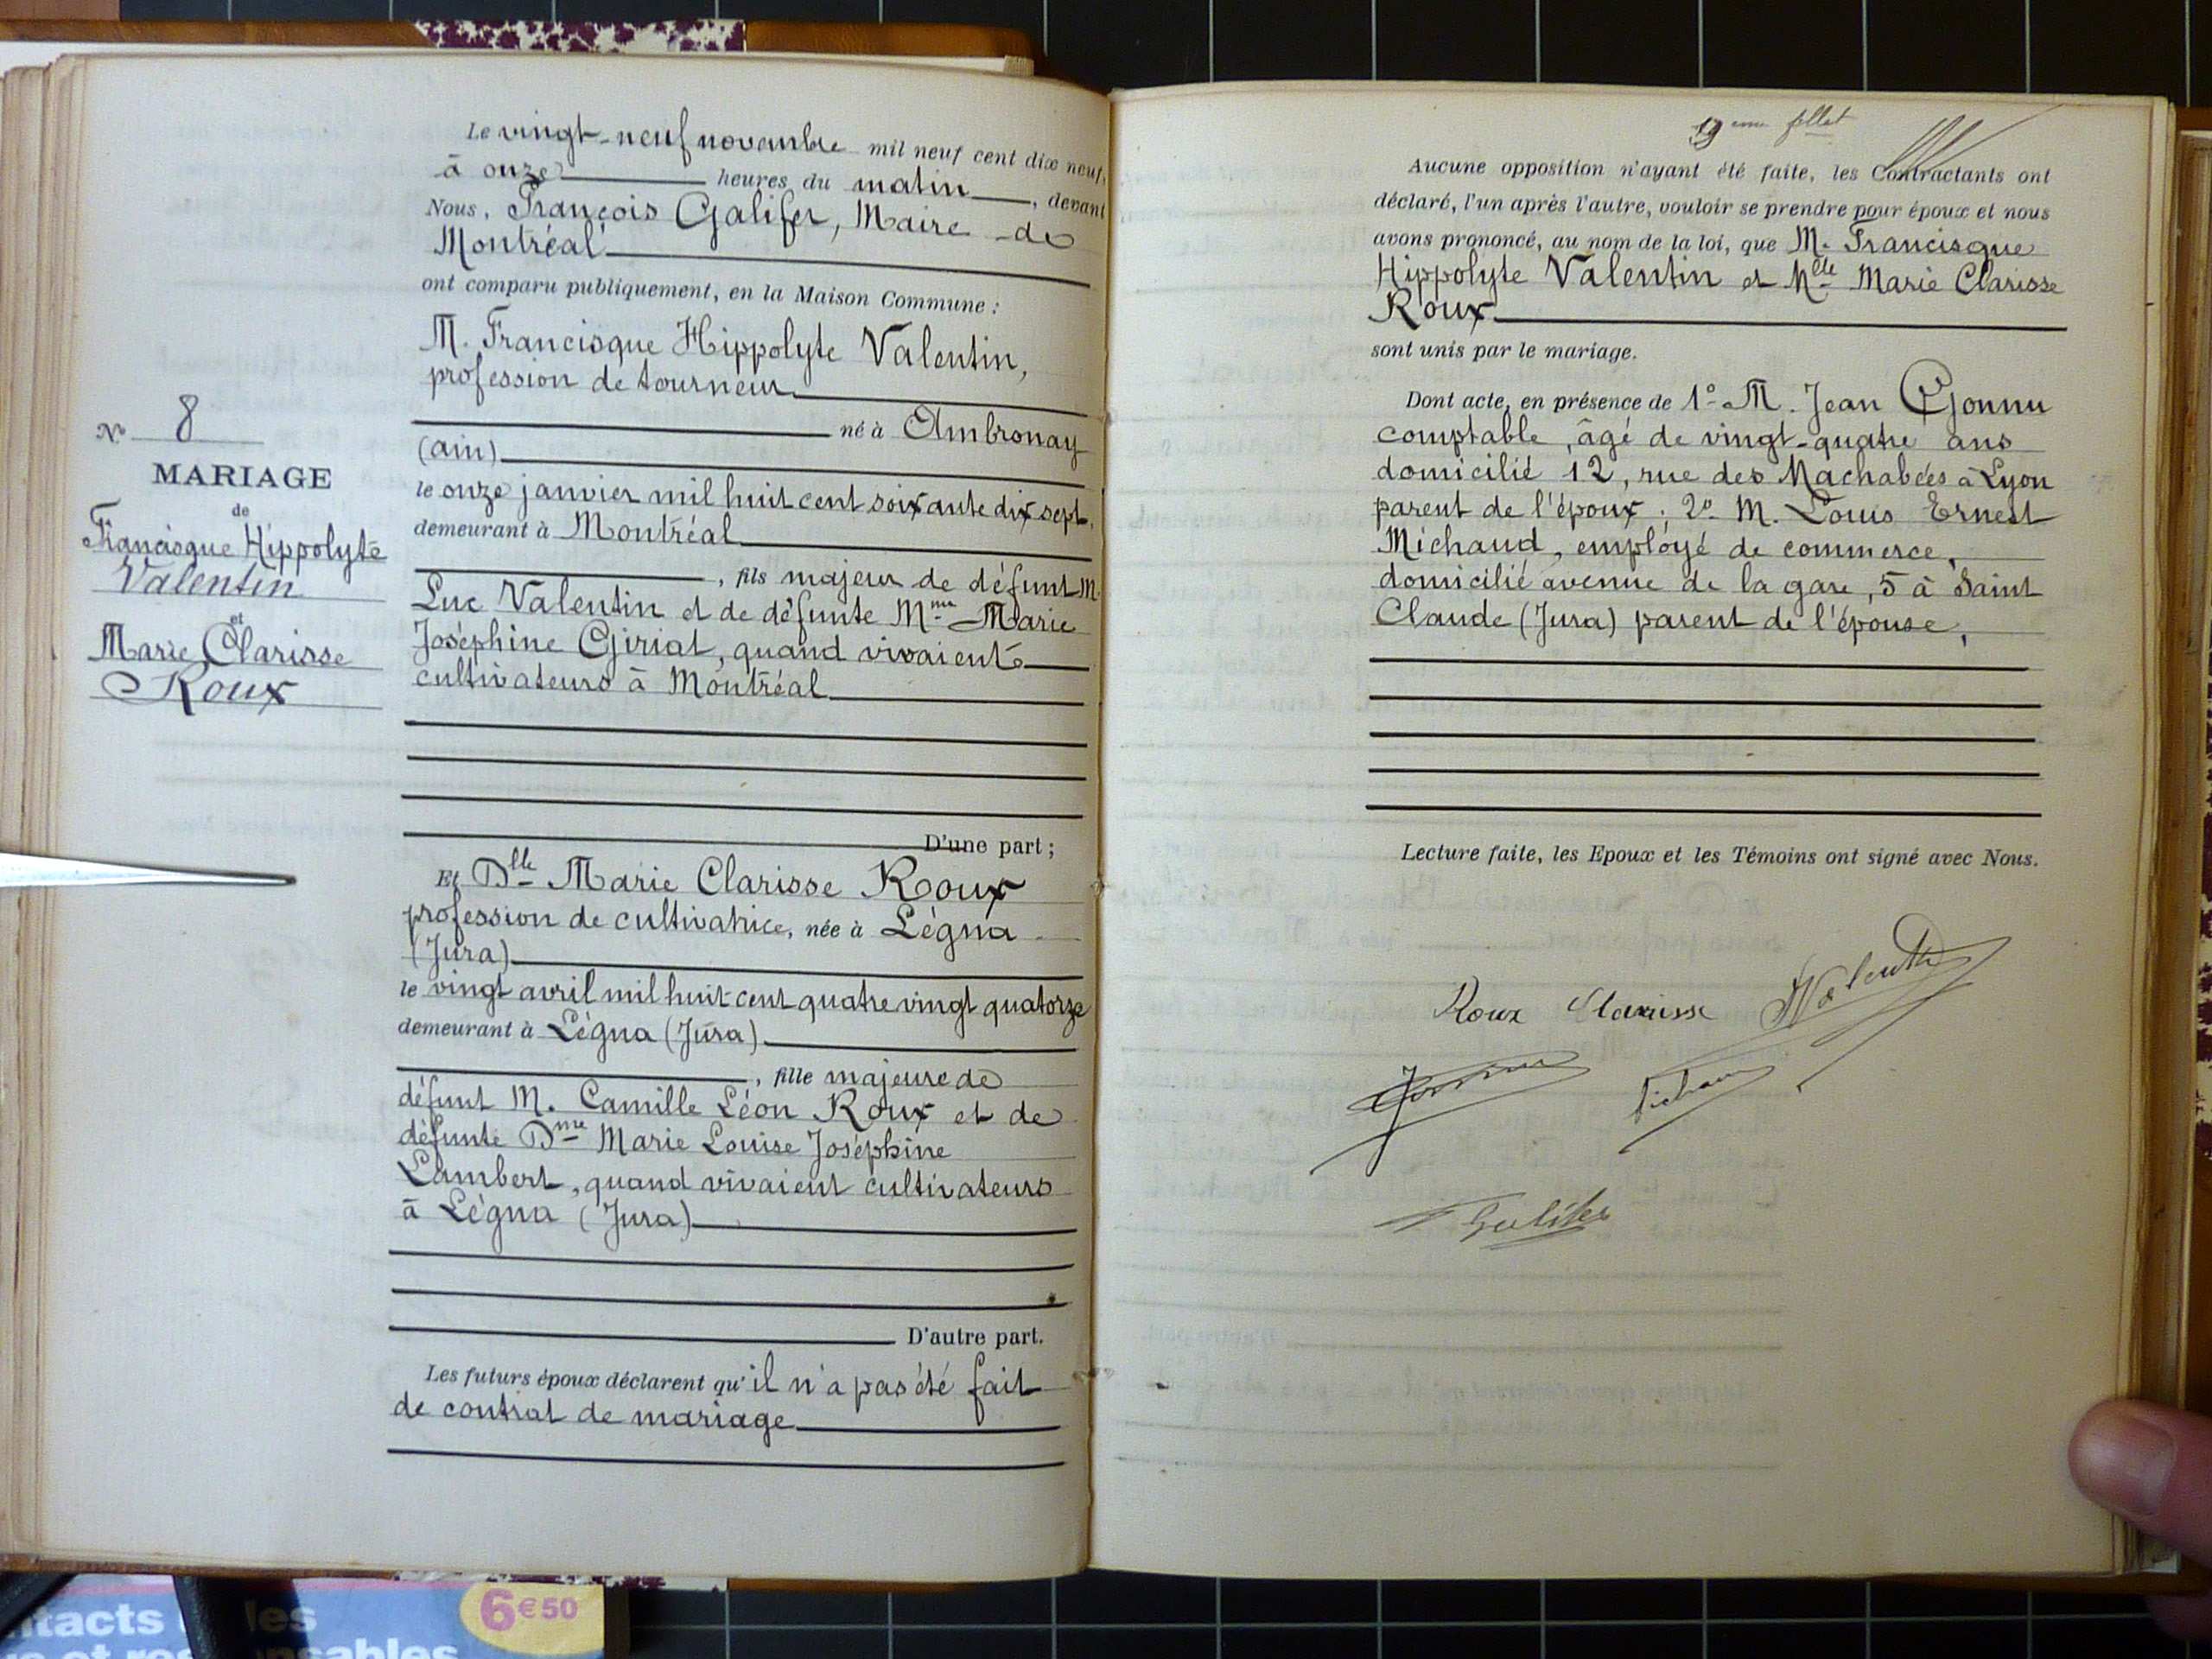 Le vingt-neuf novembre mil neuf cent dix neuf,
à onze heures du matin, devant
Nous, François Galifer, Maire de
Montréal
ont comparu publiquement, en la Maison Commune :
M. Francisque Hippolyte Valentin,
profession de tourneur
né à Ambronay
(ain)
le onze janvier mil huit cent soixante dix sept,
demeurant à Montréal
, fils majeur de défunt M.
Luc Valentin et de défunte Mme Marie
Joséphine Giriat, quand vivaient
cultivateurs à Montréal
D'une part ;
N° 8
MARIAGE
de
Francisque Hippolyte
Valentin
et
Marie Clarisse
Roux
Et Dlle Marie Clarisse Roux
profession de cultivatrice, née à Légna
(Jura)
le vingt avril mil huit cent quatre vingt quatorze
demeurant à Légna (Jura)
, fille majeure de
défunt M. Camille Léon Roux et de
défunte Dme Marie Louise Joséphine
Lambert, quand vivaient cultivateurs
à Légna (Jura)
D'autre part.
Les futurs époux déclarent qu'il n'a pas été fait
de contrat de mariage
19eme fllet
Aucune opposition n'ayant été faite, les Contractants ont
déclaré, l'un après l'autre, vouloir se prendre pour époux et nous
avons prononcé, au nom de la loi, que M. Francisque
Hippolyte Valentin et Mlle Marie Clarisse
Roux
sont unis par le mariage.
Dont acte, en présence de 1° M. Jean Gonnu
comptable, âgé de vingt-quatre ans
domicilié 12, rue des Machabées à Lyon
parent de l'époux ; 2° M. Louis Ernest
Michaud, employé de commerce,
domicilié avenue de la gare, 5 à Saint
Claude (Jura) parent de l'épouse,
Lecture faite, les Epoux et les Témoins ont signé avec Nous.
Roux Clarisse Valentin
Galifer
6€50